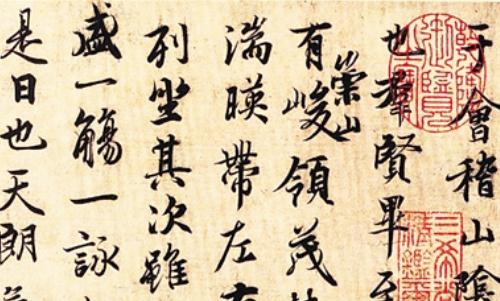 于會稽山陰
也羣賢畢至
有崇山峻領茂
湍暎帶左右
列坐其次雖
盛一觴一詠
是日也天朗